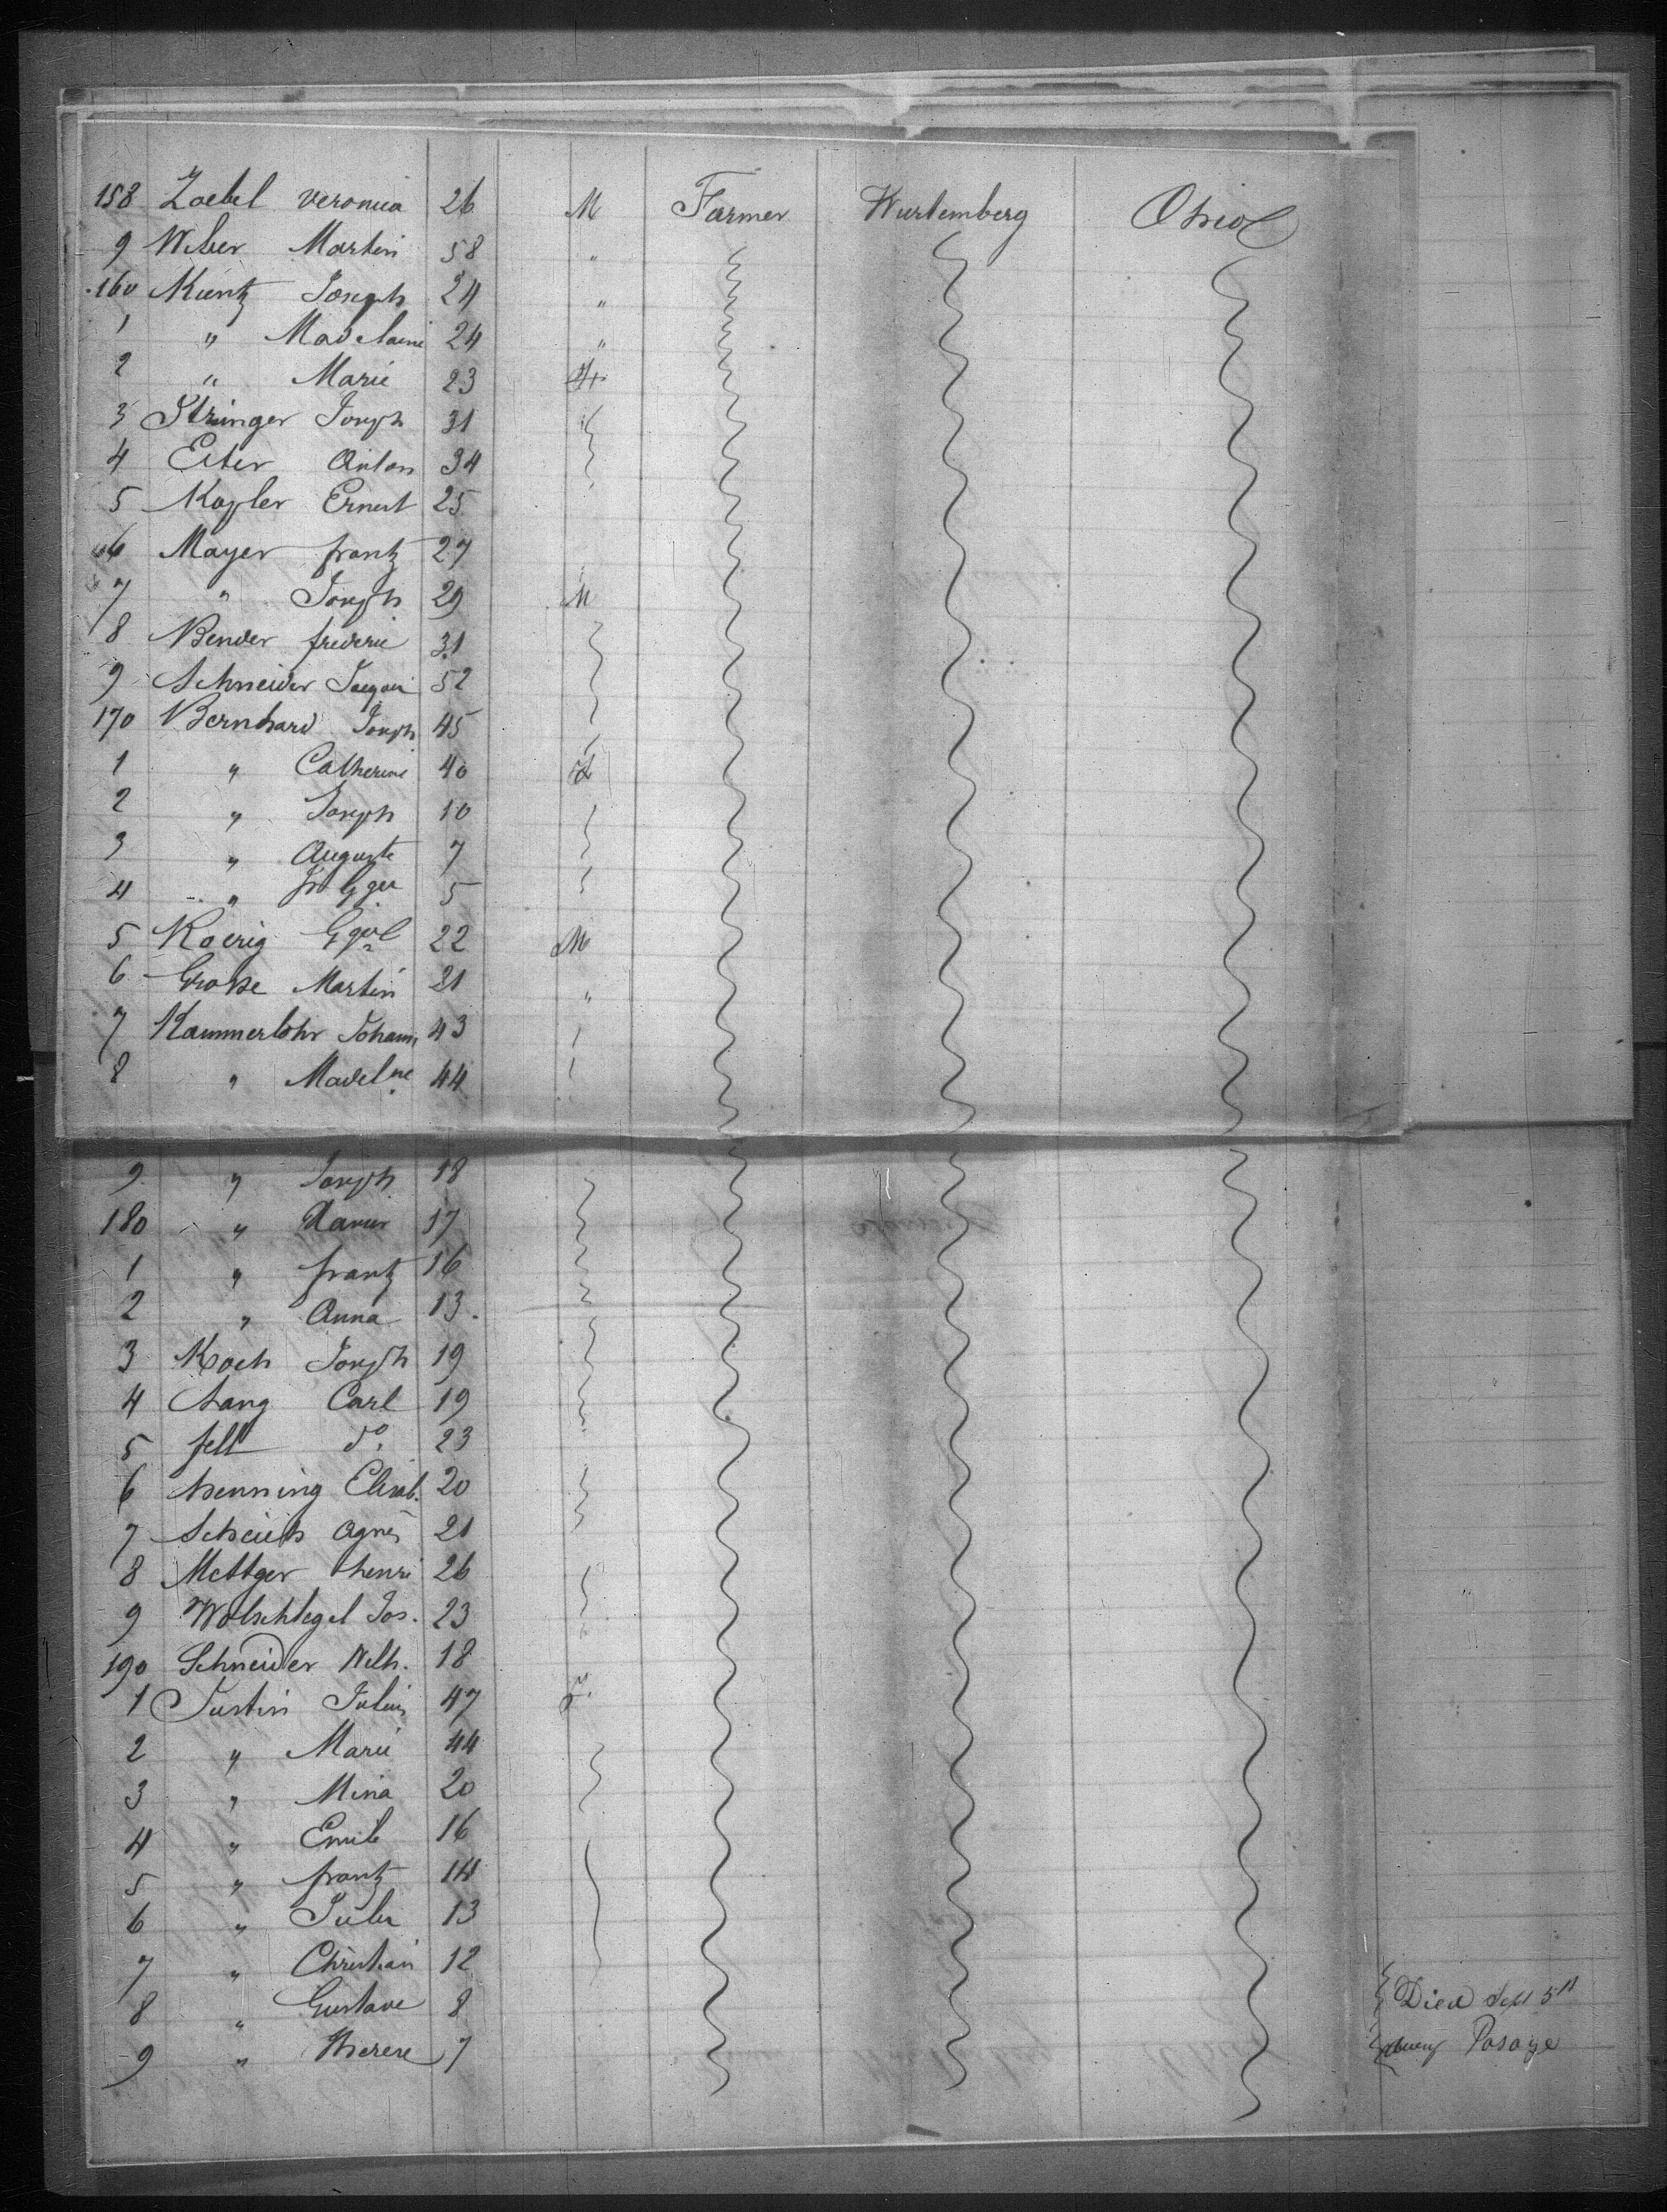 158 Zoebel Veronica 26 M Farmer Wurtemberg Ohio
9 Weber Martin 58 "
160 Kuntz Joseph 24 "
1 " Madelaine 24 "
2 " Marie 23
3 Stringer Joseph 31
4 Eiter Anton 34
5 Kopler Ernest 25
66 Mayer frantz 27
7 " Joseph 29 M
8 Bender frederic 31
9 Schneider 52
170 Bernhard Joseph 45
1 " Catherine 40
2 " Joseph 10
3 " Auguste 7
4 " 5
5 Koerig 22 M
6 Grosse Martin 21 "
7 Kammerlohr Johann 43
8 " Madelne 44
9 " Joseph 18
180 " Xavier 17
1 " frantz 16
2 " Anna 13.
3 Koch Joseph 19
4 Lang Carl 19
5 fell do. 23
6 henning Elisab. 20
7 Agnes 21
8 Mettger henri 26
9 Wolschlegel Jos. 23
190 Schneider Wilh. 18
1 Justin Julius 47
2 " Marie 44
3 " Mina 20
4 " Emile 16
5 " frantz 14
6 " 13
7 " Christian 12
8 " Gustave 8 Died Sept 5th
9 " Therese 7 Pasage